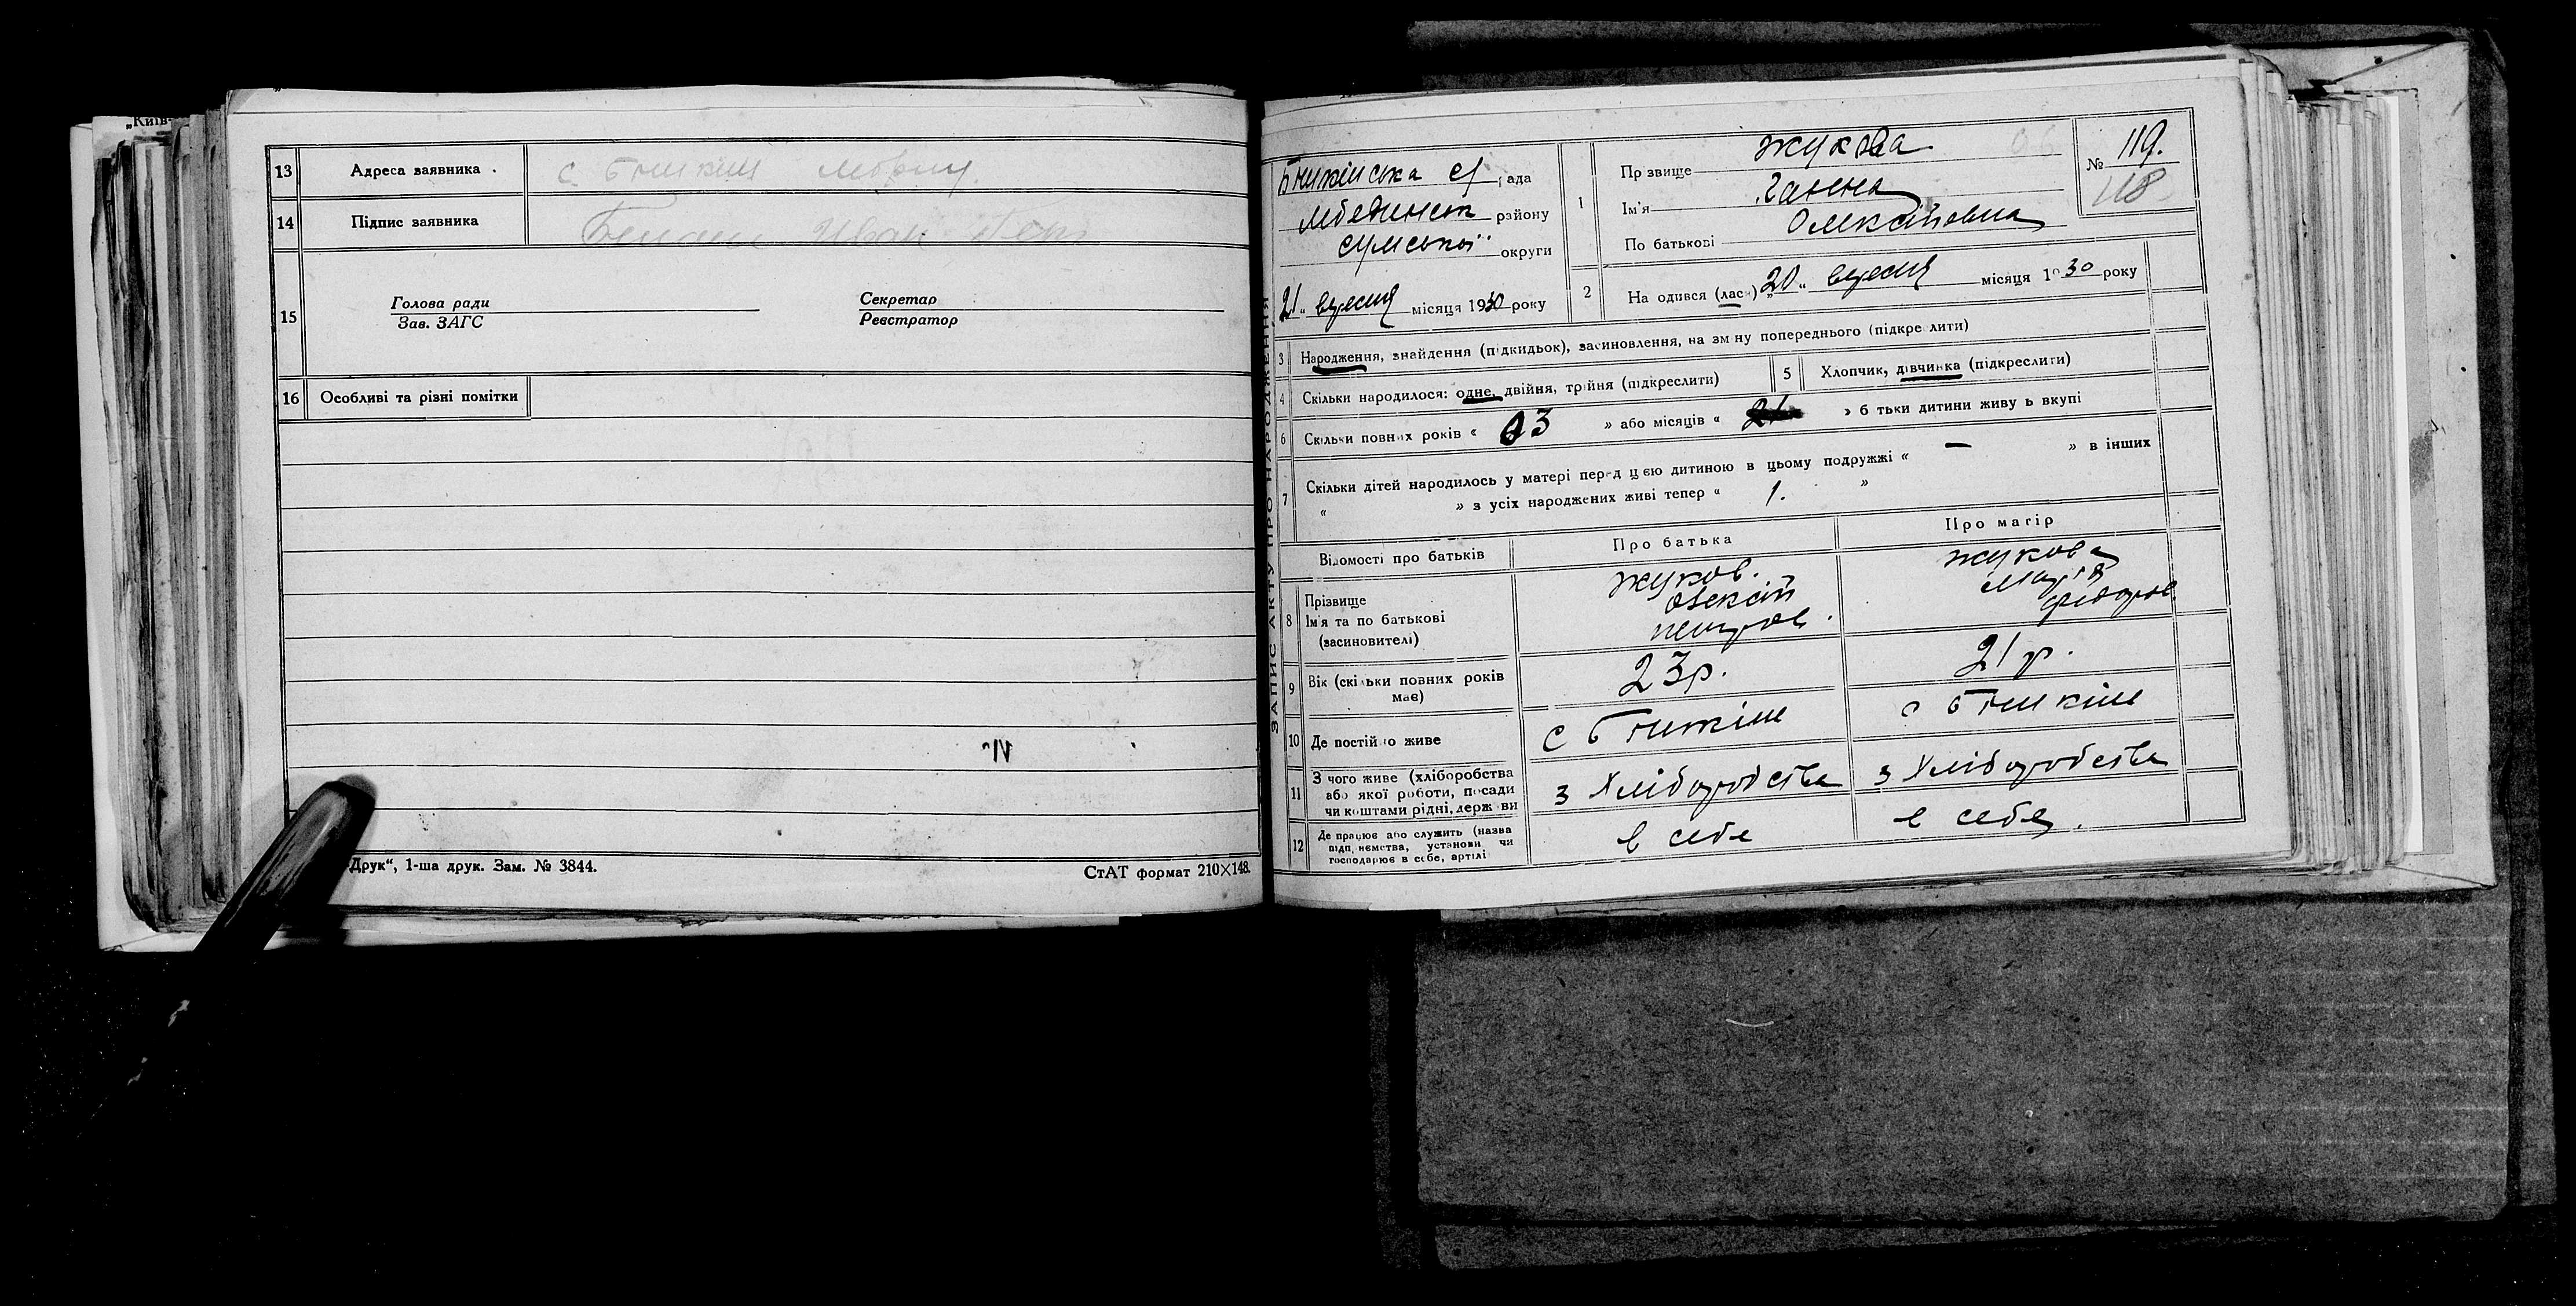 „Київ-
13 Адреса заявника. с Бишкінь
14 Підпис заявника Иван
15 Голова ради Секретар
Зав. ЗАГС Реєстратор
16 Особливі та різні помітки
Друк“, 1-ша друк. Зам. № 3844. СтАТ формат 210×148.
ЗАПИС АКТУ ПРО НАРОДЖЕННЯ
Бишкінська с/рада
Лебединськ району
Сумської округи
21 вересня місяця 1930 року
1 Пр звище Жукова
Ім'я Ганна
По батькові Олексіївна
№ 119.
118
2 На одився (лас ) „20“ вересня місяця 1930 року
3 Народження, знайдення (підкидьок), засиновлення, на зм ну попереднього (підкре лити)
4 Скільки народилося: одне, двійня, трійня (підкреслити) 5 Хлопчик, дівчинка (підкреслити)
6 Скільки повних років « 3 » або місяців « » б тьки дитини живу ь вкупі
7 Скільки дітей народилось у матері перед цією дитиною в цьому подружжі « — » в інших
« » з усіх народжених живі тепер « 1. »
Відомості про батьків Про батька Про матір
8 Прізвище Жуков. Жукова
Ім'я та по батькові Олексій Марія
(засиновителі) Петров. Федоров.
9 Вік (скільки повних років має) 23р. 21 р.
10 Де постійно живе с Бишкінь с Бишкінь
11 З чого живе (хліборобства
або якої роботи, посади
чи коштами рідні, держ ви з хліборобства з хліборобства
12 Де працює або служить (назва
підп.иємства, установи чи
господарює в себе, артілі в себе в себе.